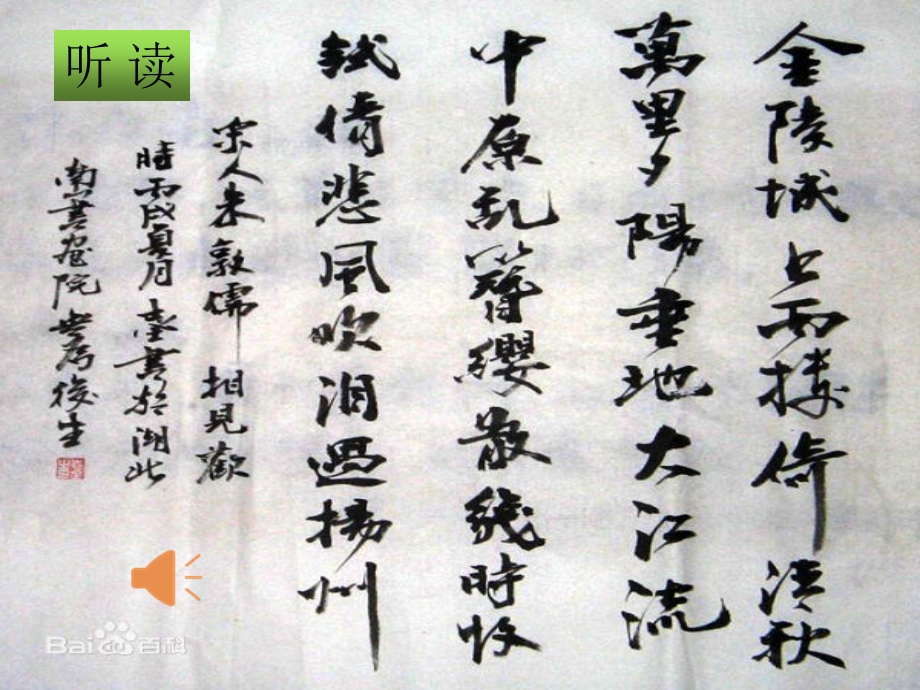 听 读
金陵城上西樓倚清秋
萬里夕陽垂地大江流
中原亂簪纓散幾時收
試倩悲風吹淚過揚州
宋人朱敦儒 相見歡
時丙戌夏月 書於湖北
南 書畫院 後生
Bai百科